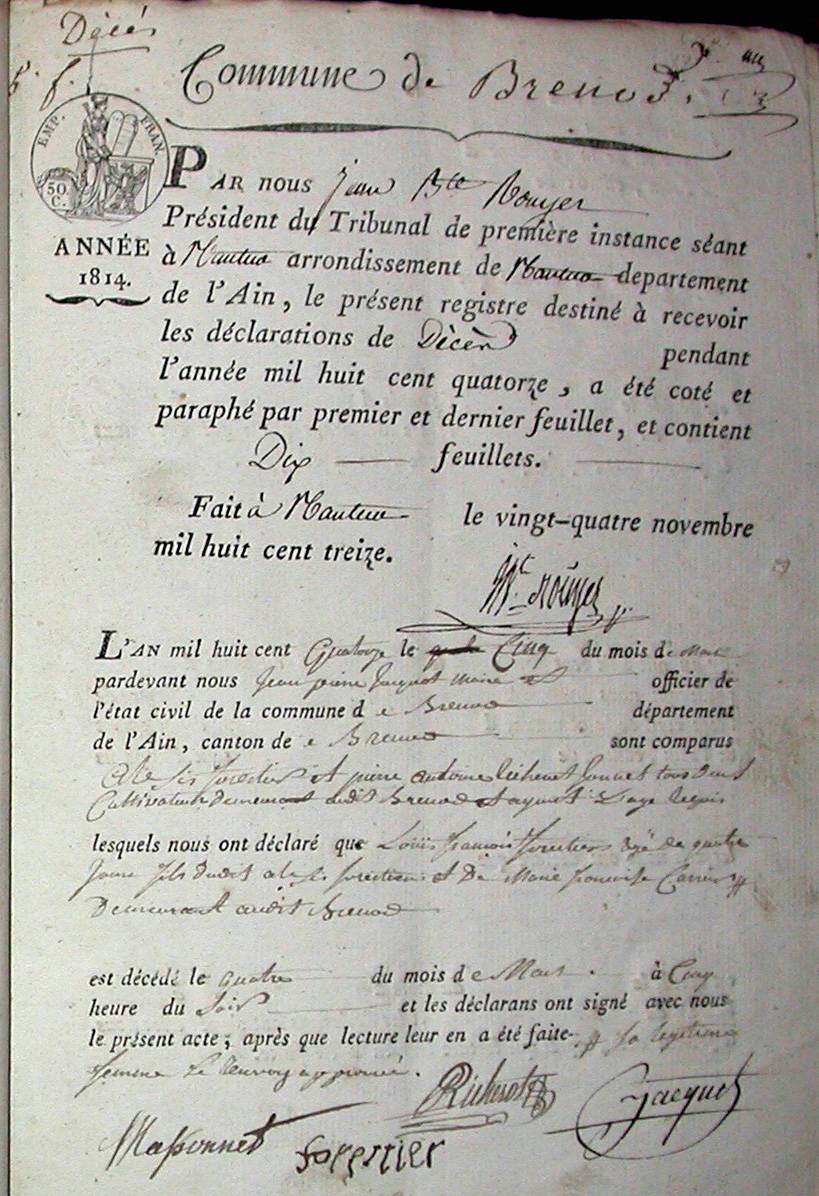 Décés
Commune de Brenod.
EMP. FRAN.
50
C.
ANNÉE
1814.
PAR nous jean Bte Rouyer
Président du Tribunal de première instance séant
à Nantua arrondissement de Nantua departement
de l'Ain, le présent registre destiné à recevoir
les déclarations de Décès pendant
l'année mil huit cent quatorze, a été coté et
paraphé par premier et dernier feuillet, et contient
Dix feuillets.
Fait à Nantua le vingt-quatre novembre
mil huit cent treize.
Bte Rouyer
L'AN mil huit cent Quatorze le Cinq du mois de Mars
pardevant nous Jean pierre Jacquet maire et officier de
l'état civil de la commune de Brenod département
de l'Ain, canton de Brenod sont comparus
forestier et pierre antoine tous deux
Cultivateurs demeurant audit Brenod et ayant L'age requis
lesquels nous ont déclaré que Louis françois forestier agé de quatre
jours fils dudit alexis forestier et De Marie françoise
Demeurant audit Brenod
est décédé le quatre du mois de Mars à Cinq
heure du Soir et les déclarans ont signé avec nous
le présent acte, après que lecture leur en a été faite sa legitime
femme Le renvoy approuvé.
Richerot Jacquet
Massonnet forestier